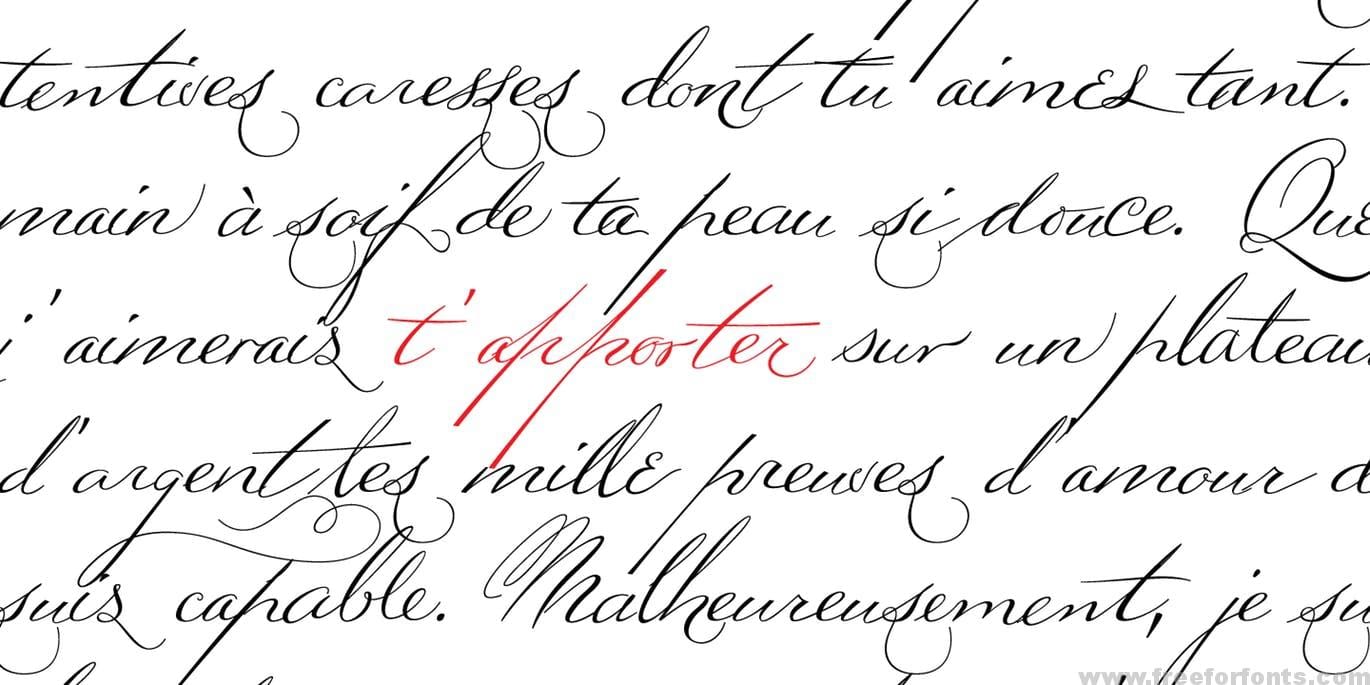 tentives caresses dont tu aimes tant.
main à soif de ta peau si douce. Que
j'aimerais t'apporter sur un plateau
d'argent les mille preuves d'amour d
suis capable. Malheureusement, je su
www.freeforfonts.com